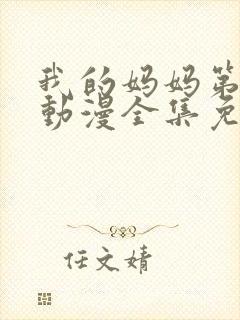 我的妈妈第
動漫全集免
任文婧